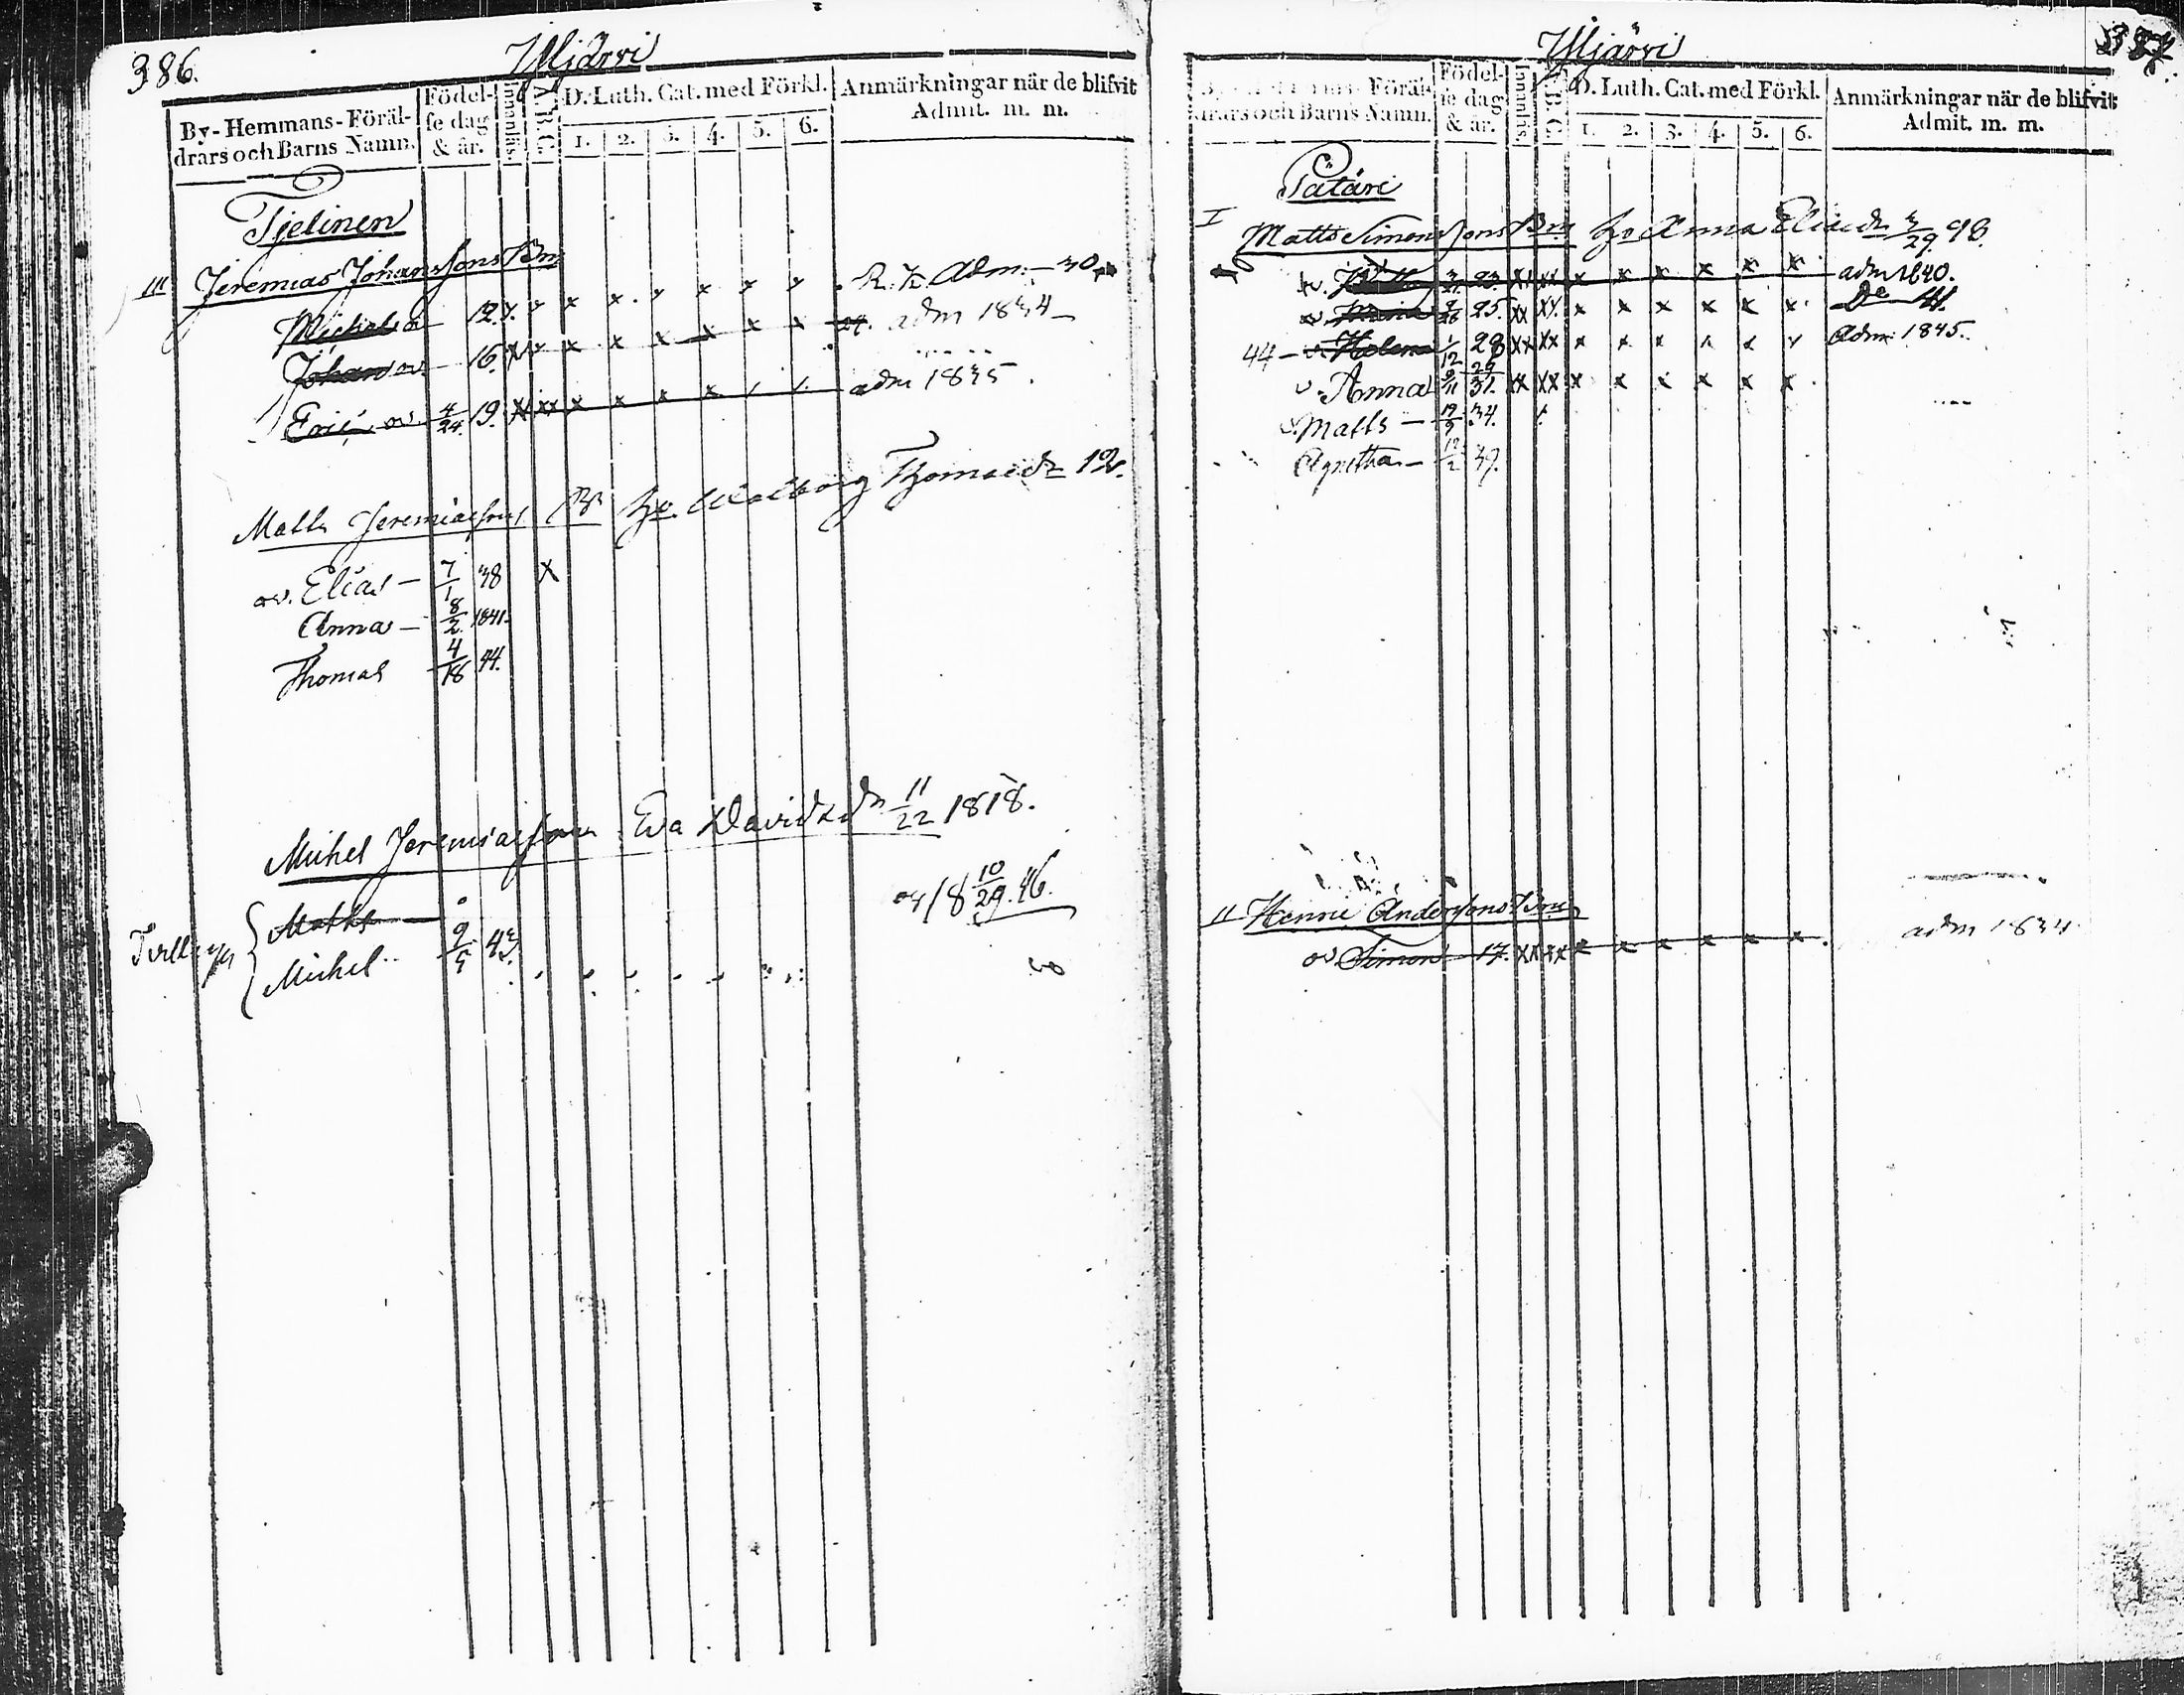 386.
Yljärvi
By-Hemmans-Föräl-
drars och Barns Namn.
Födel-
se dag
& år.
Innanläs.
A.B.C.
D. Luth. Cat. med Förkl.
1. 2. 3. 4. 5. 6.
Anmärkningar när de blifvit
Admit. m. m.
Tjelinen
III Jeremias Johanssons Brn
Michel 12. x x x x x x Adm. 30
Johan 16. x x x x x x adm 1834
Eric 4/24 19. x x x x adm 1835
Matts Jeremiaessons hu. Walborg Thomaedr 12.
Elias 7/1 38 x
Anna 8/2 1841.
Thomas 4/18 44.
Michel Jeremiaesson Eva Davidsdr 11/22 1818.
Matts 18 10/29 46.
Michel 9/5 43.
387.
Yljärvi
Föräl-
drars och Barns Namn.
Födel-
se dag
& år.
Innanläs.
A.B.C.
D. Luth. Cat. med Förkl.
1. 2. 3. 4. 5. 6.
Anmärkningar när de blifvit
Admit. m. m.
Pätäri
I Matts Simonssons Brn hu Anna Eliaedr 3/29 98.
23. xx xx x x x x x x adm 1840.
Maria 25. xx xx x x x x x x Do 41.
44 Helena 1/12 28 xx xx x x x Adm 1845.
v. Anna 31. xx xx x x x x x x
v. Matts 19/9 34.
Agnetha 12/2 39.
II Henric Anderssons Brn
Simon 17. xx xx x x x x x x adm 1834.